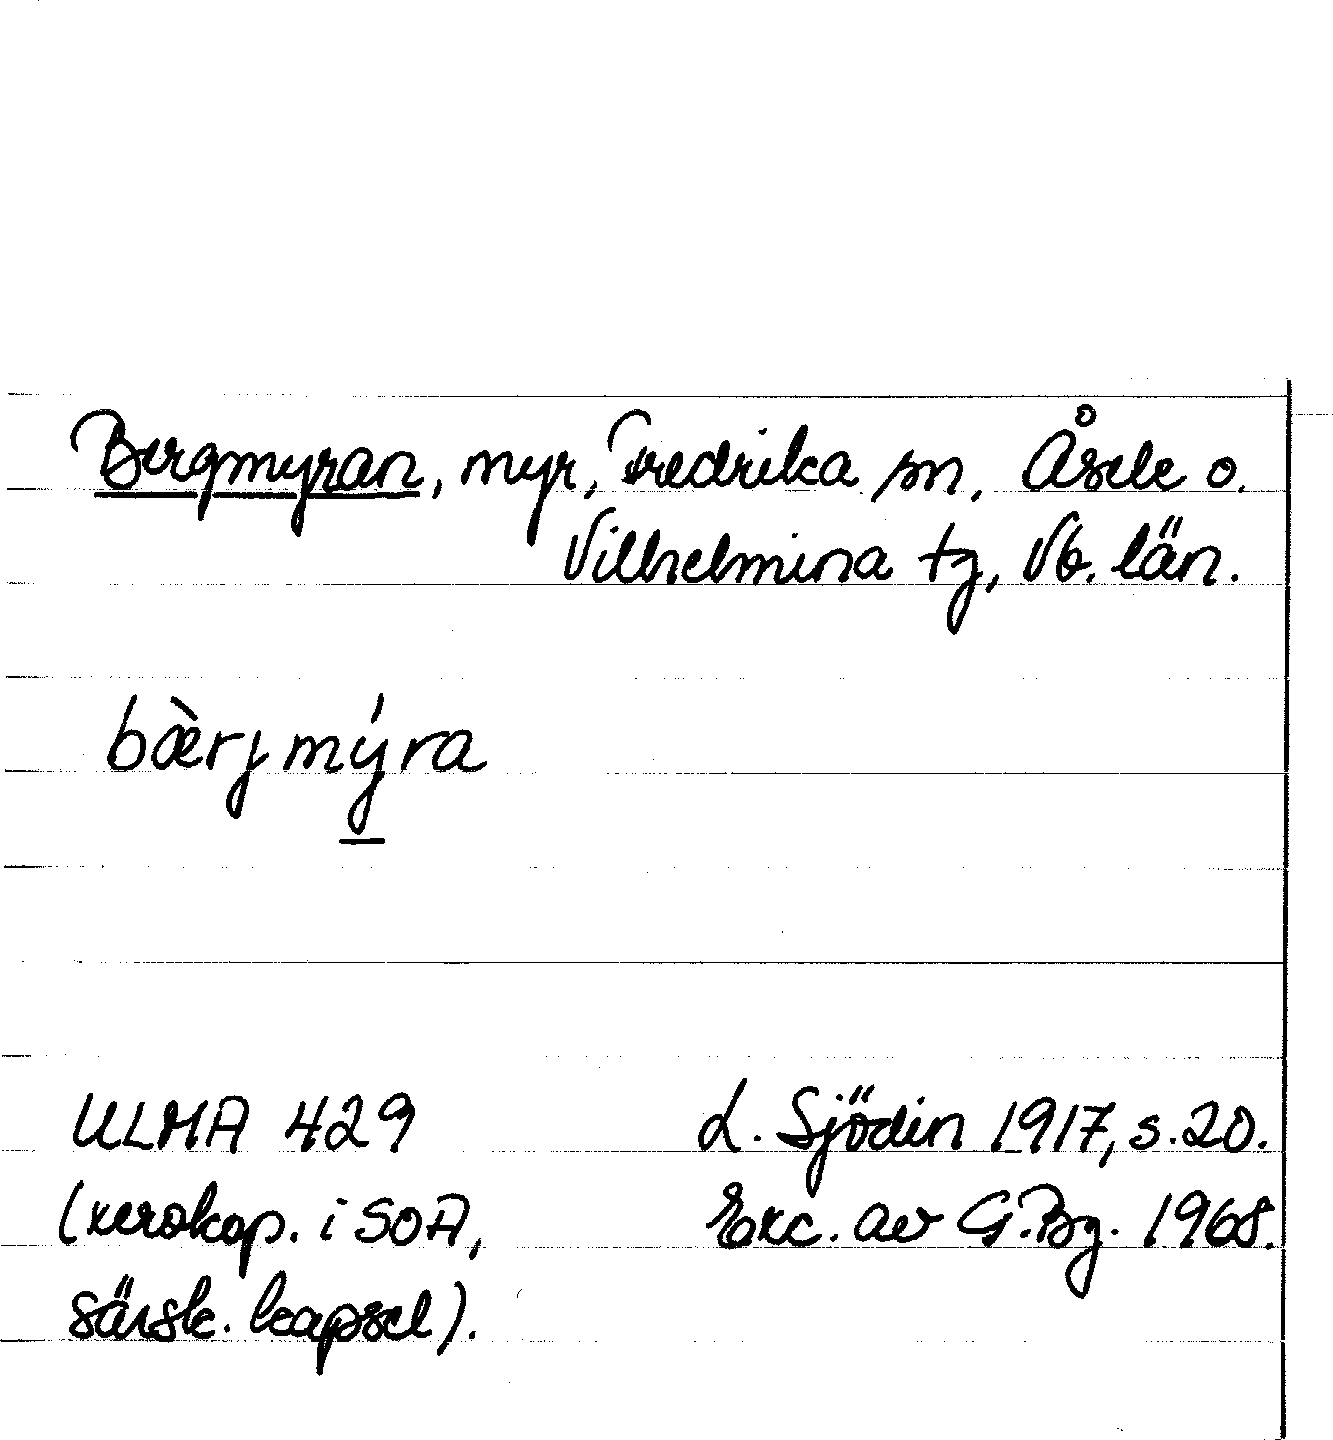 Bergmyran, myr, Fredrika sn, Åsele o.
Vilhelmina tg, Vb. län.
bæ̀rjmýra
ULMA 429
(xerokop. i SOA,
särsk. kapsel).
L. Sjödin 1917, s. 20.
Exc. av G. Bg. 1968.